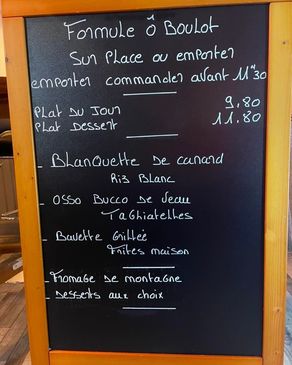 Formule Ô Boulot
Sur Place ou emporter
emporter commander avant 11H30
Plat du Jour 9,80
Plat Dessert 11.80
- Blanquette de canard
Riz Blanc
- Osso Bucco de Veau
Taghiatelles
- Bavette Grillée
Frites maison
- Fromage de montagne
- Desserts aux choix